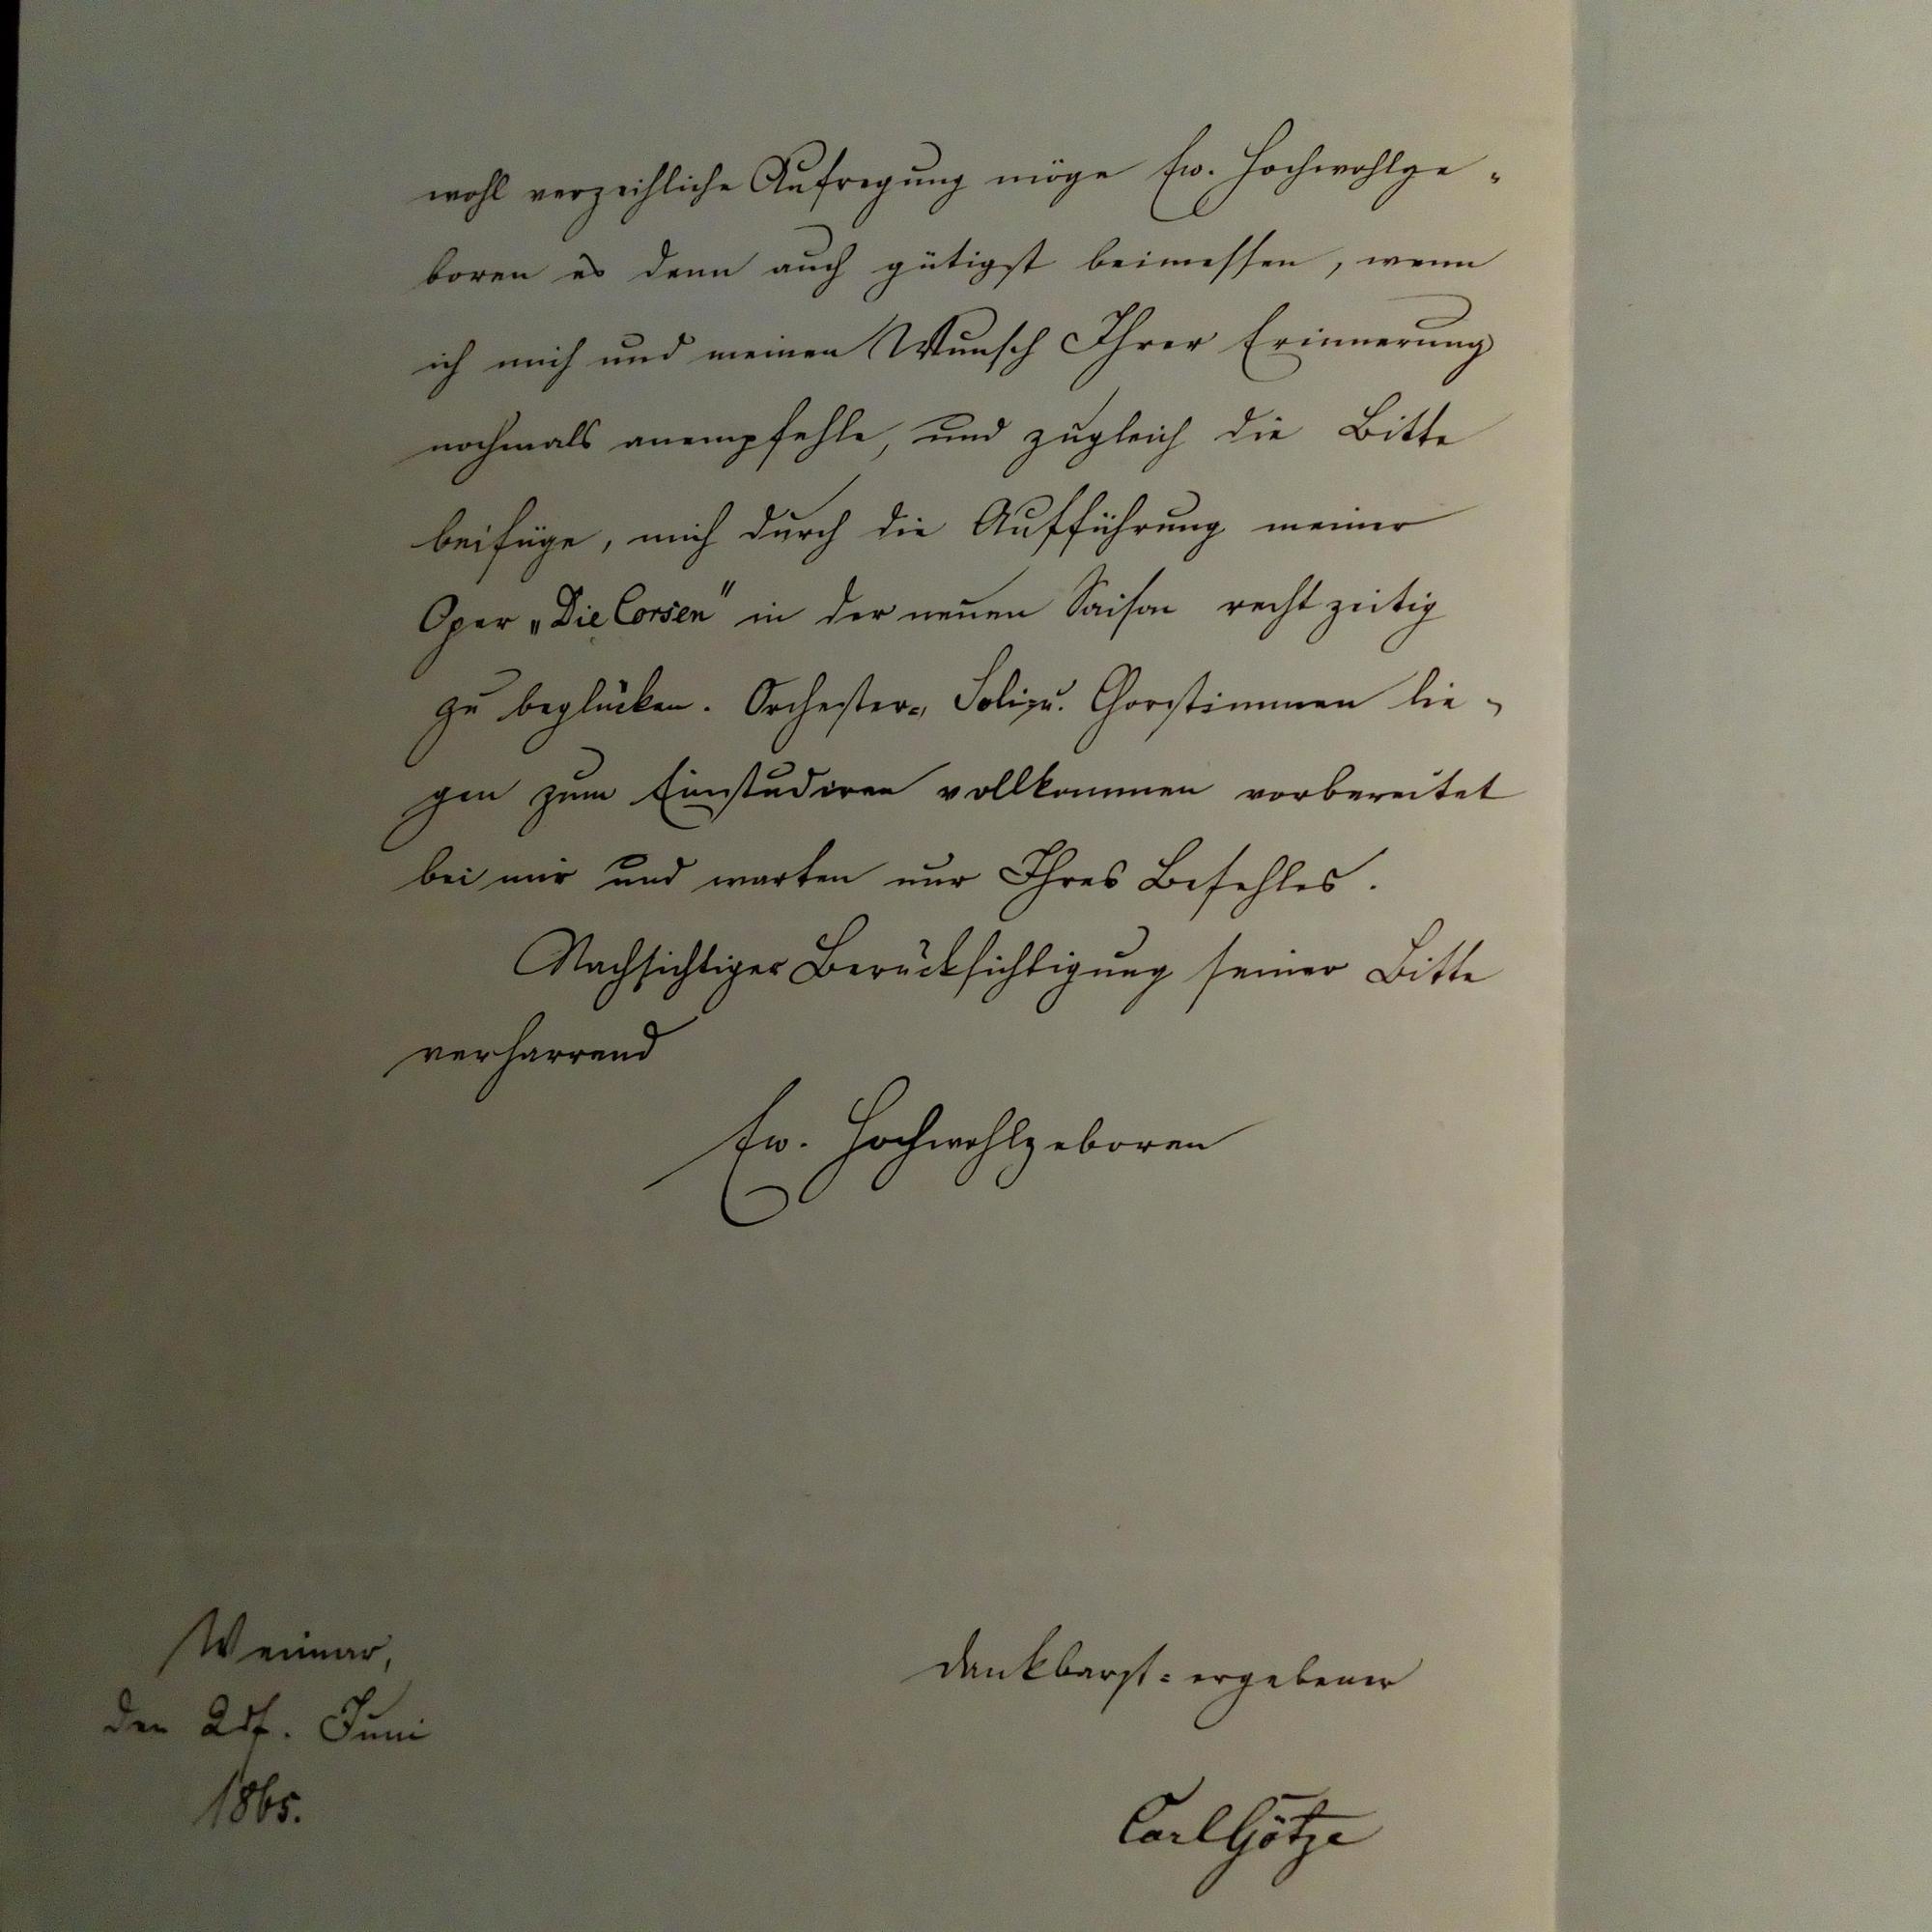 wohl verzeihliche Aufregung möge Ew. Hochwohlge-
boren es denn auch gütigst beimessen, wenn
ich mich und meinen Wunsch Ihrer Erinnerung
nochmals anempfehle, und zugleich die Bitte
beifüge, mich durch die Aufführung meiner
Oper „Die Corsen" in der neuen Saison recht zeitig
zu beglücken. Orchester-, Soli- u. Chorstimmen lie-
gen zum Einstudiren vollkommen vorbereitet
bei mir und warten nur Ihres Befehles.
Nachsichtiger Berücksichtigung seiner Bitte
verharrend
Ew. Hochwohlgeboren
Weimar,
den Juni
1865.
dankbarst-ergebener
Carl Götze